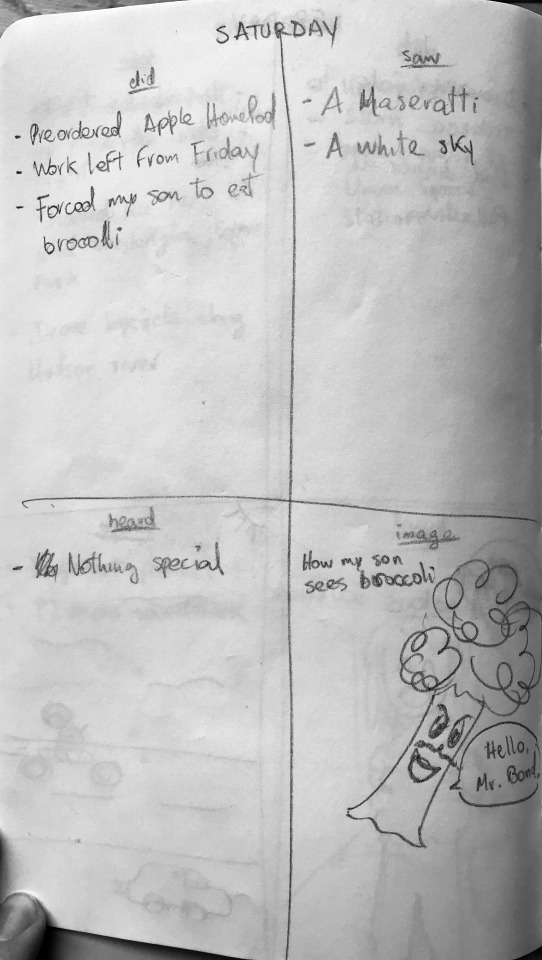 SATURDAY
did
- Preordered Apple HomePod
- Work left from Friday
- Forced my son to eat
brocolli
saw
- A Maseratti
- A white sky
heard
- Nothing special
image
How my son
sees broccoli
Hello,
Mr. Bond.